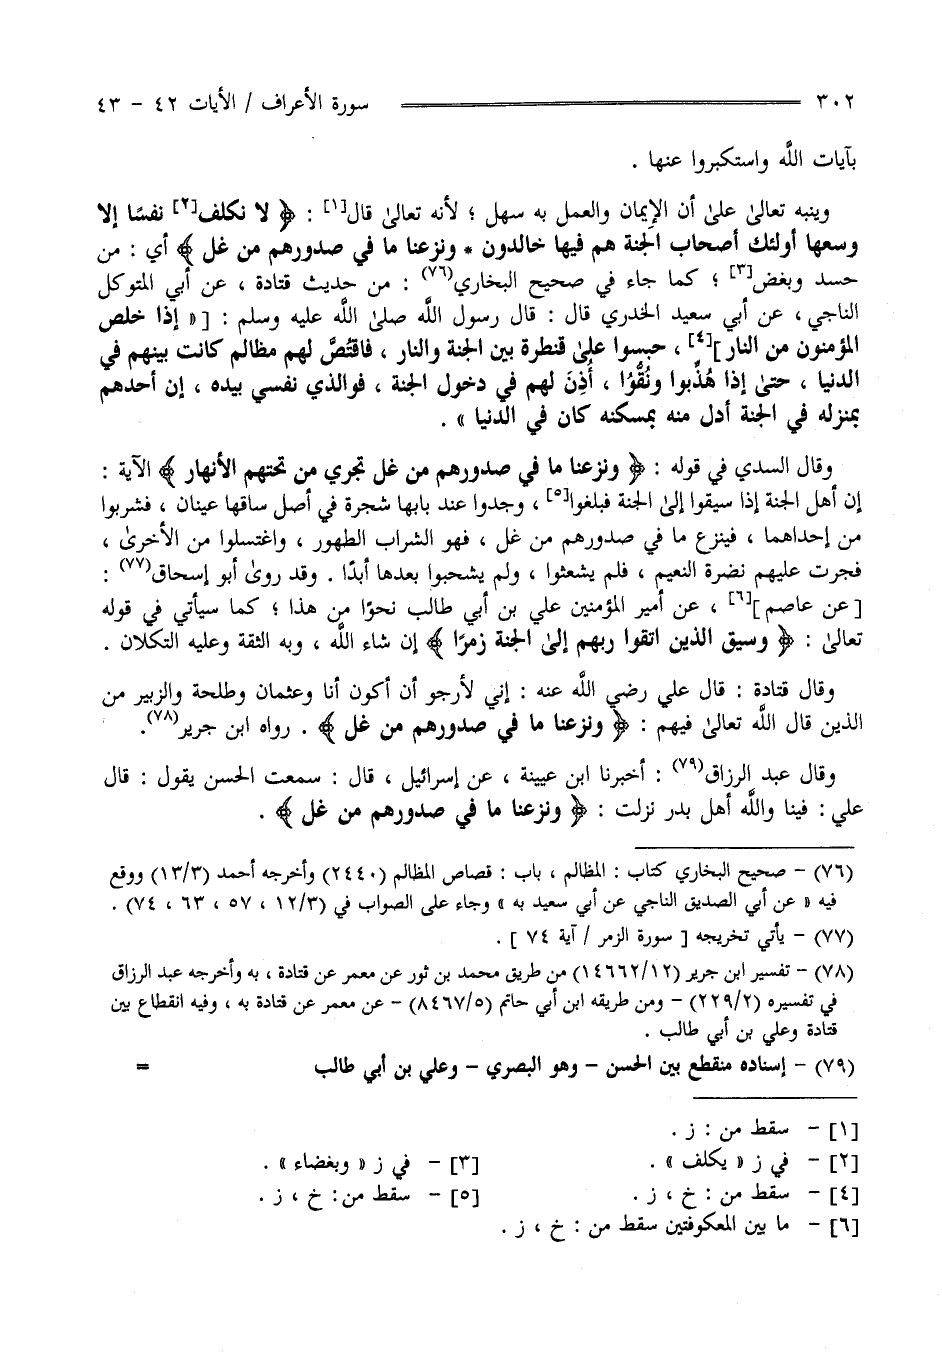 ٣٠٢ سورة الأعراف / الأيات ٤٢ - ٤٣
بآيات اللَّه واستكبروا عنها .
وينبه تعالىٰ علىٰ أن الإيمان والعمل به سهل ؛ لأنه تعالىٰ قال[١] : ﴿ لا نكلف[٢] نفسًا إلا
وسعها أولئك أصحاب الجنة هم فيها خالدون * ونزعنا ما في صدورهم من غل ﴾ أي : من
حسد وبغض[٣] ؛ كما جاء في صحيح البخاري(٧٦) : من حديث قتادة ، عن أبي المتوكل
الناجي ، عن أبي سعيد الخدري قال : قال رسول اللَّه صلىٰ اللَّه عليه وسلم : [« إذا خلص
المؤمنون من النار ][٤] ، حبسوا علىٰ قنطرة بين الجنة والنار ، فاقتُصَّ لهم مظالم كانت بينهم في
الدنيا ، حتىٰ إذا هُذِّبوا ونُقُّوا ، أُذِنَ لهم في دخول الجنة ، فوالذي نفسي بيده ، إن أحدهم
بمنزله في الجنة أدل منه بمسكنه كان في الدنيا » .
وقال السدي في قوله : ﴿ ونزعنا ما في صدورهم من غل تجري من تحتهم الأنهار ﴾ الآية :
إن أهل الجنة إذا سيقوا إلىٰ الجنة فبلغوا[٥] ، وجدوا عند بابها شجرة في أصل ساقها عينان ، فشربوا
من إحداهما ، فينزع ما في صدورهم من غل ، فهو الشراب الطهور ، واغتسلوا من الأخرىٰ ،
فجرت عليهم نضرة النعيم ، فلم يشعثوا ، ولم يشحبوا بعدها أبدًا . وقد روىٰ أبو إسحاق(٧٧) :
[ عن عاصم ][٦] ، عن أمير المؤمنين علي بن أبي طالب نحوًا من هذا ؛ كما سيأتي في قوله
تعالىٰ : ﴿ وسيق الذين اتقوا ربهم إلىٰ الجنة زمرًا ﴾ إن شاء اللَّه ، وبه الثقة وعليه التكلان .
وقال قتادة : قال علي رضي اللَّه عنه : إني لأرجو أن أكون أنا وعثمان وطلحة والزبير من
الذين قال اللَّه تعالىٰ فيهم : ﴿ ونزعنا ما في صدورهم من غل ﴾ . رواه ابن جرير(٧٨).
وقال عبد الرزاق(٧٩) : أخبرنا ابن عيينة ، عن إسرائيل ، قال : سمعت الحسن يقول : قال
علي : فينا واللَّه أهل بدر نزلت : ﴿ ونزعنا ما في صدورهم من غل ﴾ .
(٧٦) - صحيح البخاري كتاب : المظالم ، باب : قصاص المظالم (٢٤٤٠) وأخرجه أحمد (١٣/٣) ووقع
فيه « عن أبي الصديق الناجي عن أبي سعيد به » وجاء على الصواب في (١٢/٣ ، ٥٧ ، ٦٣ ، ٧٤) .
(٧٧) - يأتي تخريجه [ سورة الزمر / آية ٧٤ ] .
(٧٨) - تفسير ابن جرير (١٤٦٦٢/١٢) من طريق محمد بن ثور عن معمر عن قتادة ، به وأخرجه عبد الرزاق
في تفسيره (٢٢٩/٢) - ومن طريقه ابن أبي حاتم (٨٤٦٧/٥) - عن معمر عن قتادة به ، وفيه انقطاع بين
قتادة وعلي بن أبي طالب .
(٧٩) - إسناده منقطع بين الحسن - وهو البصري - وعلي بن أبي طالب =
[١] - سقط من : ز .
[٢] - في ز « يكلف » . [٣] - في ز « وبغضاء » .
[٤] - سقط من : خ ، ز . [٥] - سقط من : خ ، ز .
[٦] - ما بين المعكوفتين سقط من : خ ، ز .